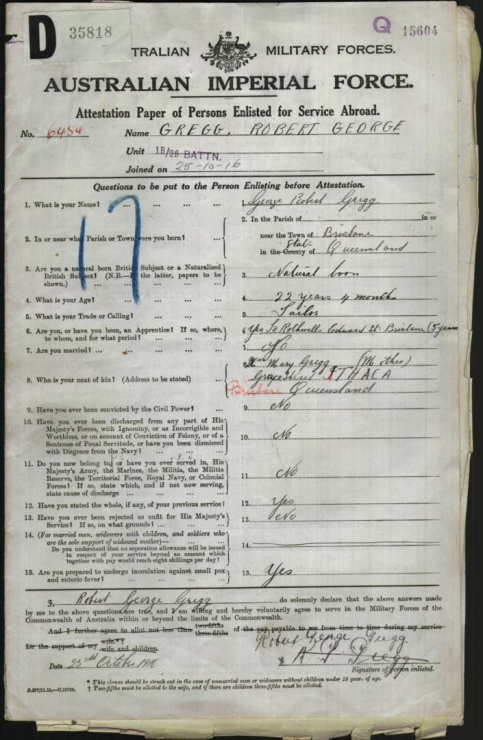 D 35818
Q 15604
TRALIAN MILITARY FORCES.
AUSTRALIAN IMPERIAL FORCE.
Attestation Paper of Persons Enlisted for Service Abroad.
No. 6484 Name GREGG, ROBERT GEORGE
Unit 18/25 BATTN.
Joined on 25-10-16
Questions to be put to the Person Enlisting before Attestation.
17
1. What is your Name? ... 1. George Robert Gregg
2. In or near what Parish or Town were you born? ... 2. In the Parish of in or
near the Town of Brisbane
in the County of State Queensland
3. Are you a natural born British Subject or a Naturalised
British Subject? (N.B.— the latter, papers to be
shown.) ... 3. Natural born
4. What is your Age? ... 4. 22 years 4 months
5. What is your Trade or Calling? ... 5. Tailor
6. Are you, or have you been, an Apprentice? If so, where,
to whom, and for what period? ... 6. Yes To Rothwells Edward St Brisbane (5 years
7. Are you married? ... 7. No
8. Who is your next of kin? (Address to be stated) ... 8. Mrs Mary Gregg (Mother)
Street ITHACA
Brisbane Queensland
9. Have you ever been convicted by the Civil Power? ... 9. No
10. Have you ever been discharged from any part of His
Majesty's Forces, with Ignominy, or as Incorrigible and
Worthless, or on account of Conviction of Felony, or of a
Sentence of Penal Servitude, or have you been dismissed
with Disgrace from the Navy? ... 10. No
11. Do you now belong to, or have you ever served in, His
Majesty's Army, the Marines, the Militia, the Militia
Reserve, the Territorial Force, Royal Navy, or Colonial
Forces? If so, state which, and if not now serving,
state cause of discharge ... 11. No
12. Have you stated the whole, if any, of your previous service? 12. Yes
13. Have you ever been rejected as unfit for His Majesty's
Service? If so, on what grounds? ... 13. No
14. (For married men, widowers with children, and soldiers who
are the sole support of widowed mother)—
Do you understand that no separation allowance will be issued
in respect of your service beyond an amount which
together with pay would reach eight shillings per day? 14.
15. Are you prepared to undergo inoculation against small pox
and enteric fever? ... 15. Yes
I, Robert George Gregg do solemnly declare that the above answers made
by me to the above questions are true, and I am willing and hereby voluntarily agree to serve in the Military Forces of the
Commonwealth of Australia within or beyond the limits of the Commonwealth.
And I further agree to allot not less than two-fifths three-fifths of the pay payable to me from time to time during my service
for the support of my wife.* † wife and children.
Robert George Gregg
Date 25th October 1916 R G Gregg
Signature of person enlisted.
* This clause should be struck out in the case of unmarried men or widowers without children under 18 year of age.
† Two-fifths must be allotted to the wife, and if there are children three-fifths must be allotted.